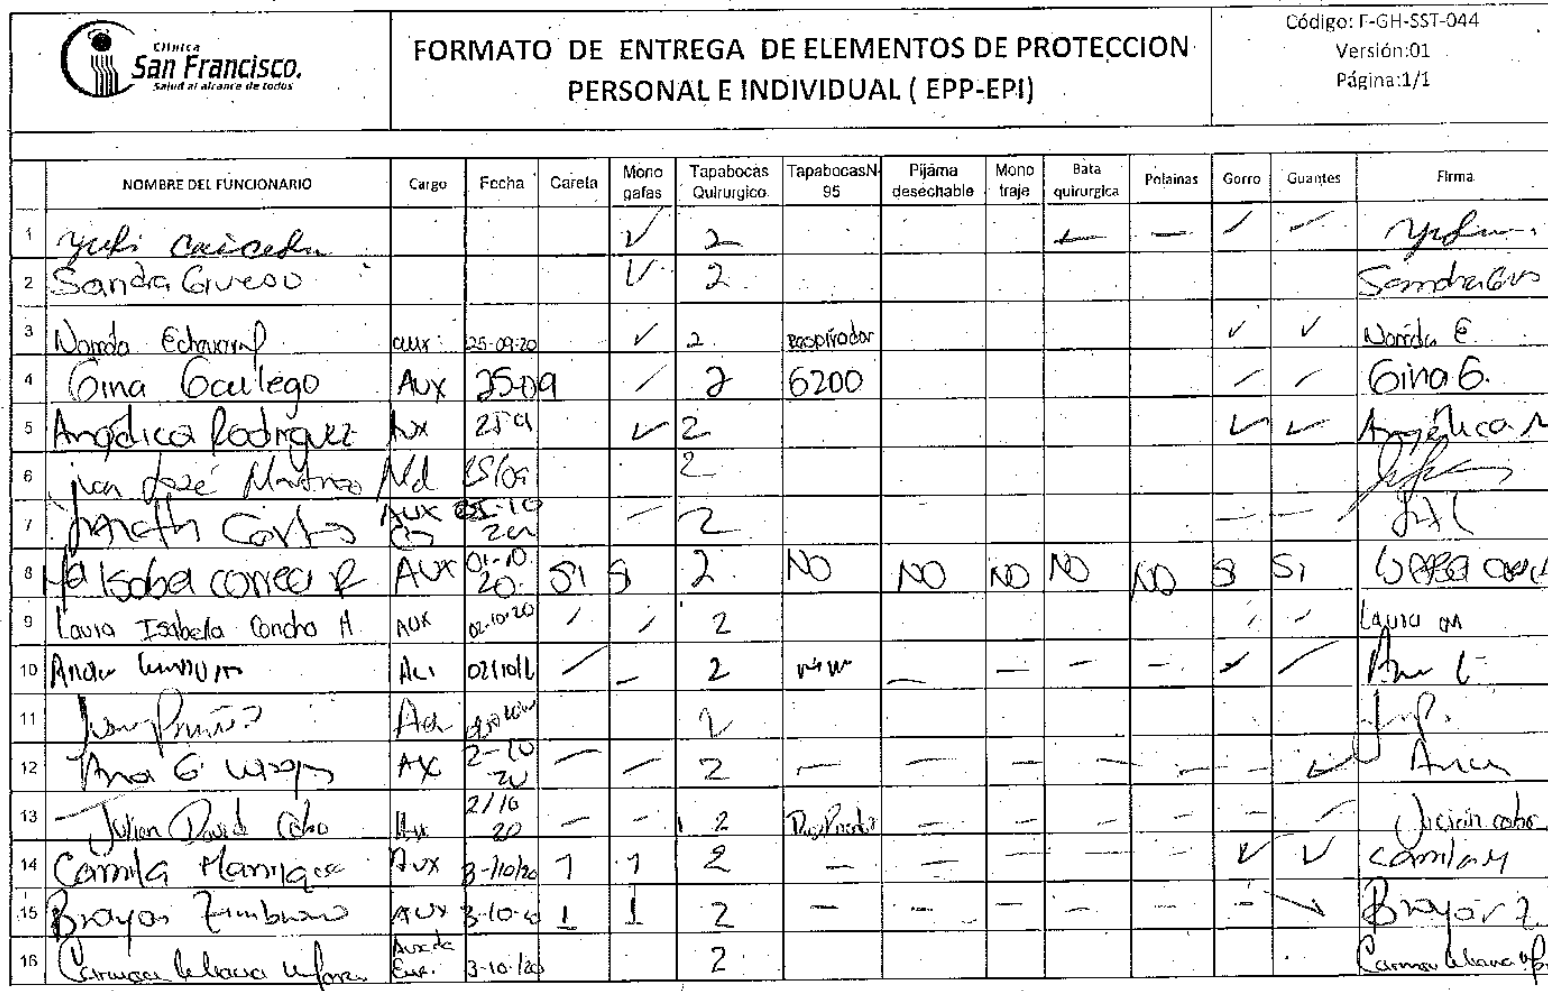 Clínica
San Francisco.
Salud al alcance de todos
FORMATO DE ENTREGA DE ELEMENTOS DE PROTECCION
PERSONAL E INDIVIDUAL ( EPP-EPI)
Código: F-GH-SST-044
Versión:01
Página:1/1
NOMBRE DEL FUNCIONARIO Cargo Fecha Careta Mono gafas Tapabocas Quirurgico. TapabocasN-95 Pijama desechable Mono traje Bata quirurgica Polainas Gorro Guantes Firma
1 Yuli Caicedo ✓ 2 — — ✓ ✓
2 Sandra Grueso ✓ 2 Sandra Grus
3 Norida aux 25-09-20 ✓ 2 Respirador ✓ ✓ Norida E.
4 Gina Gallego AUX 25-09 ✓ 2 6200 ✓ ✓ Gina G.
5 Angélica Rodriguez Aux 25 9 ✓ 2 ✓ ✓ Angélica
6 Juan José Md 25/09 2
7 Cortes AUX 2 — —
8 Ma Isabel correa R AUX 01-10-20 Si Si 2 NO NO NO NO NO Si Si
9 Laura Isabella Concha M AUX 02-10-20 ✓ ✓ 2 ✓ ✓ Laura M
10 02/10/ ✓ — 2 — — — — ✓ ✓
11 2
12 Ana G AX 2-10-20 — — 2 — — — — — — ✓ Ana
13 Julian David Cobo Aux 2/10 20 — — 2 — — — — — ✓ Julián cobo
14 Camila Manrique Aux 3-/10/20 1 1 2 — — — — — ✓ ✓ Camila M
15 Brayan Zambrano AUX 3-10-20 1 1 2 — — — — — — Brayan Z.
16 Carmen Liliana Aux de Enf. 3-10-/20 2 Carmen Liliana